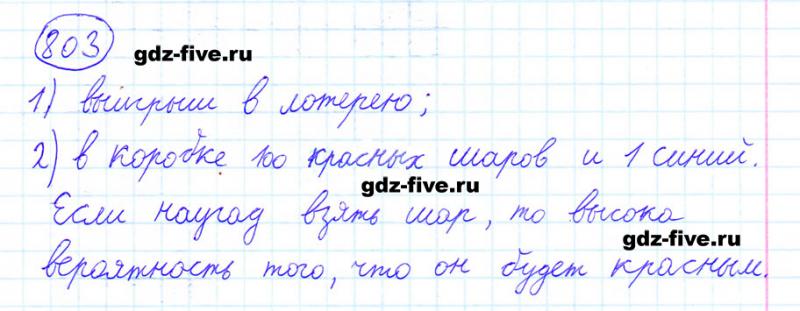 803
gdz-five.ru
1) выигрыш в лотерею;
2) в коробке 100 красных шаров и 1 синий.
gdz-five.ru
Если наугад взять шар, то высока
gdz-five.ru
вероятность того, что он будет красным.